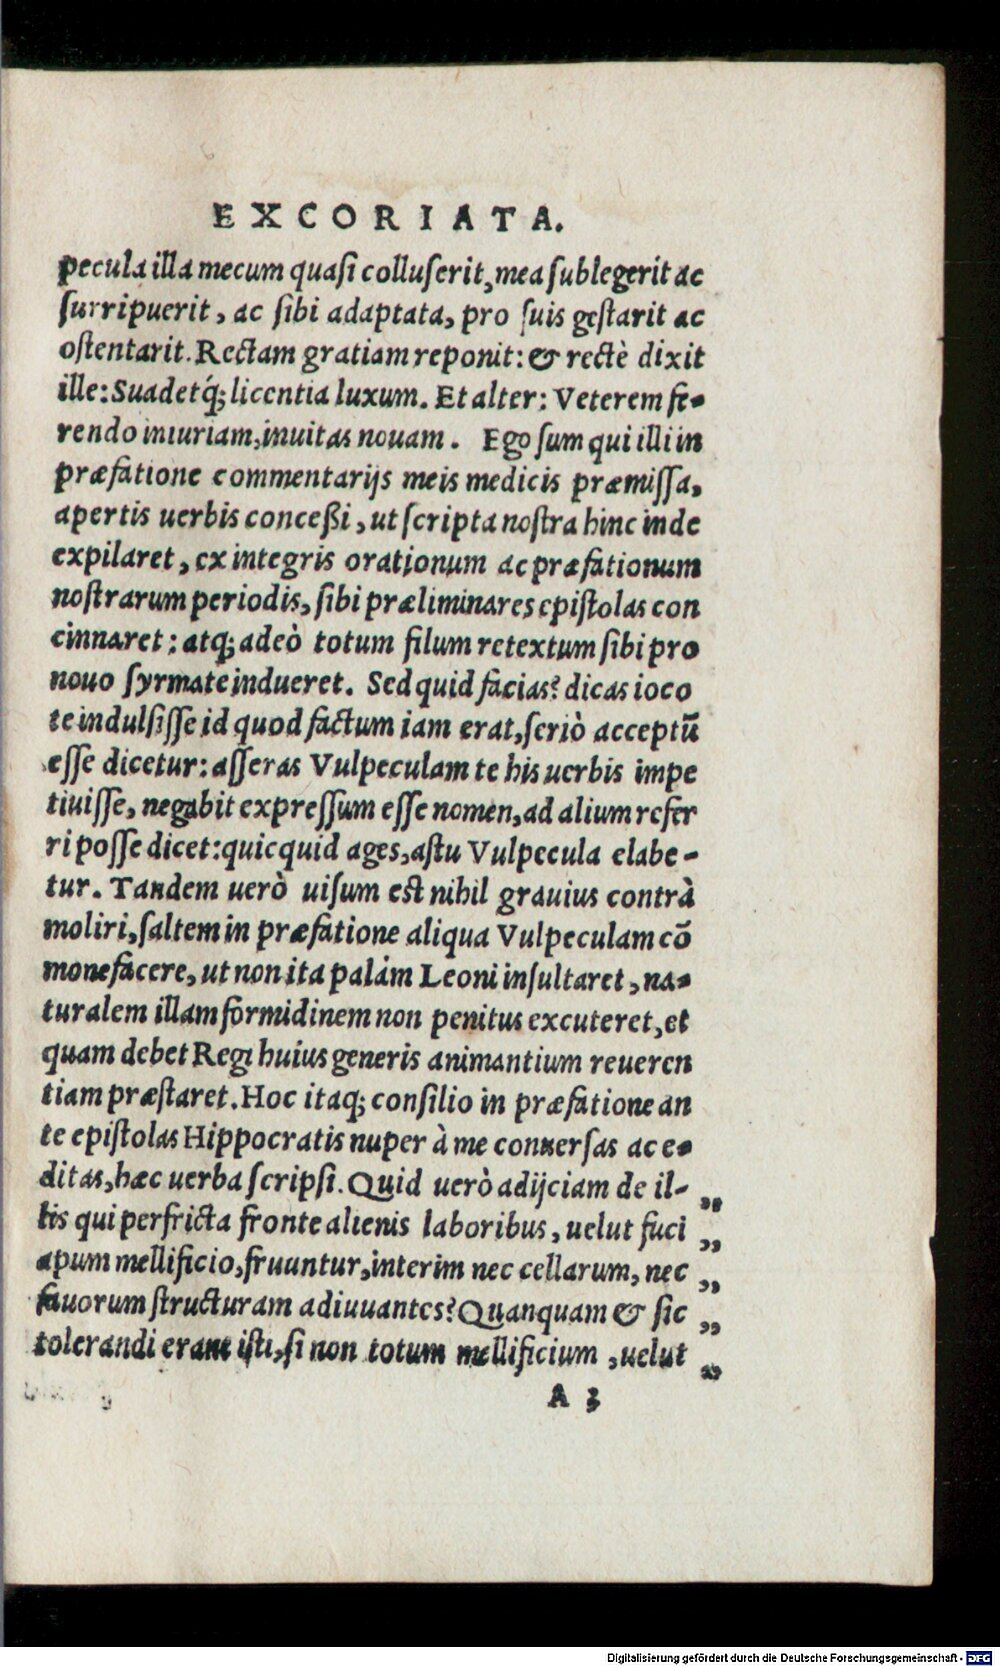 EXCORIATA.
pecula illa mecum quasi colluserit, mea sublegerit ac
surripuerit, ac sibi adaptata, pro suis gestarit ac
ostentarit. Rectam gratiam reponit: & rectè dixit
ille: Suadetq́; licentia luxum. Et alter: Veterem fe-
rendo iniuriam, inuitas nouam. Ego sum qui illi in
præfatione commentarijs meis medicis præmissa,
apertis uerbis conceßi, ut scripta nostra hinc inde
expilaret, ex integris orationum ac præfationum
nostrarum periodis, sibi præliminares epistolas con
cinnaret: atq; adeò totum filum retextum sibi pro
nouo syrmate indueret. Sed quid facias? dicas ioco
te indulsisse id quod factum iam erat, seriò acceptũ
esse dicetur: asseras Vulpeculam te his uerbis impe
tiuisse, negabit expressum esse nomen, ad alium refer
ri posse dicet: quicquid ages, astu Vulpecula elabe-
tur. Tandem uerò uisum est nihil grauius contrà
moliri, saltem in præfatione aliqua Vulpeculam cõ
monefacere, ut non ita palàm Leoni insultaret, na-
turalem illam formidinem non penitus excuteret, et
quam debet Regi huius generis animantium reueren
tiam præstaret. Hoc itaq; consilio in præfatione an
te epistolas Hippocratis nuper à me conuersas ac e-
ditas, hæc uerba scripsi. Quid uerò adijciam de il- „
lis qui perfricta fronte alienis laboribus, uelut fuci „
apum mellificio, fruuntur, interim nec cellarum, nec „
fauorum structuram adiuuantes? Quanquam & sic „
tolerandi erant isti, si non totum mellificium, uelut „
A 3
Digitalisierung gefördert durch die Deutsche Forschungsgemeinschaft - DFG